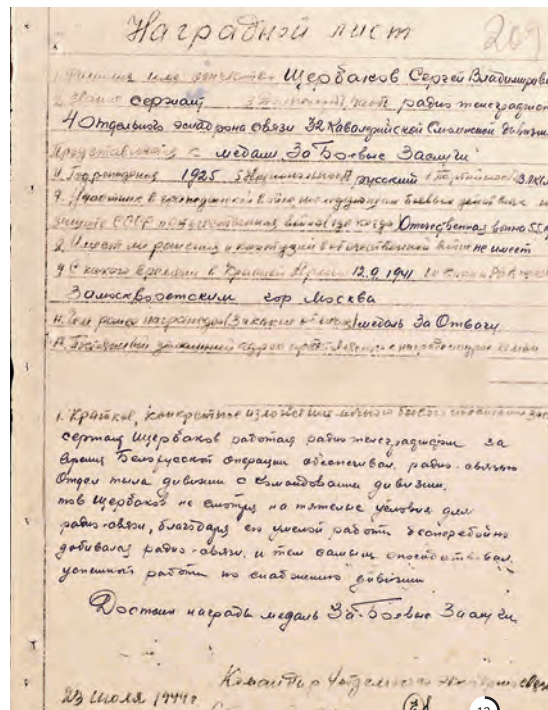 Наградной лист 209
1. Фамилия имя отчество Щербаков Сергей Владимирови
2. Звание сержант 3 радио телеграфист
4 Отдельного эскадрона связи 32 Кавалерийской Смоленской дивизии
Представляется к медали „За Боевые Заслуги"
4. Год рождения 1925 5 Национальность русский 6 Партийность ВЛКСМ
7. Участник в гражданской войне последующих боевых действиях по
защите СССР и отечественная война где когда Отечественная война
8. Имеет ли ранения и контузии в отечественной войне не имеет
9 С какого времени в Красной Армии 12.9.1941 10 Каким РВК
Замоскворетским гор Москва
11. Чем ранее награжден (за какие отличия) медаль За Отвагу
12. Постоянный домашний адрес
1. Краткое, конкретное изложение личного боевого
сержант Щербаков работая радио телеграфистом за
время Белорусской операции обеспечивал радио-связью
Отдел тыла дивизии с командованием дивизии.
тов Щербаков не смотря на тяжелые условия для
радио-связи, благодаря его умелой работы бесперебойно
добивался радио-связи, и тем самым способствовал
успешной работы по снабжению дивизии
Достоин награды медаль За-Боевые Заслуги.
Командир 4 отдельного
23 Июля 1944г
12